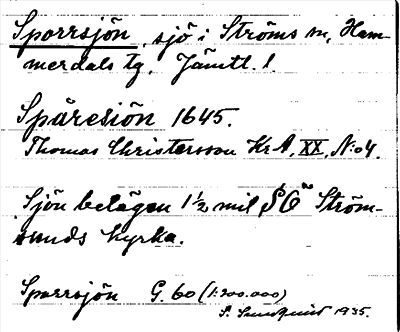 Sporrsjön, sjö i Ströms sn, Ham-
merdals tg, Jämtl. l.
Spåresiön 1645.
Thomas Christersson Kr A, XX, N:o 4.
Sjön belägen 1½ mil SÖ Ström-
sunds kyrka.
Sporrsjön G. 60 (1:200.000)
S. Sundquist 1935.